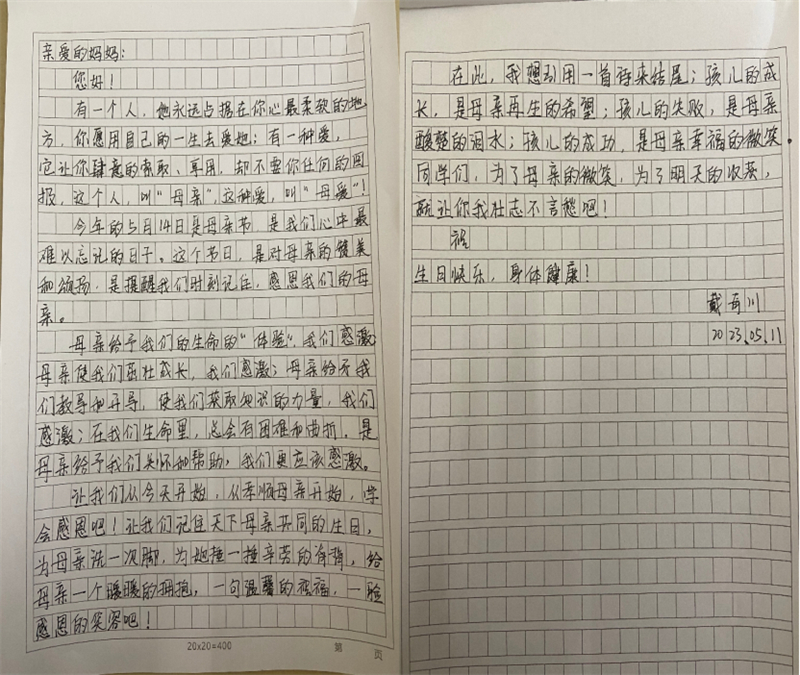 亲爱的妈妈:
您好!
有一个人,她永远占据在你心最柔软的地
方,你愿用自己的一生去爱她;有一种爱,
它让你肆意的索取、享用,却不要你任何的回
报,这个人,叫“母亲”,这种爱,叫“母爱”!
今年的5月14日是母亲节,是我们心中最
难以忘记的日子。这个节日,是对母亲的赞美
和颂扬,是提醒我们时刻记住,感恩我们的母
亲。
母亲给予我们的生命的“体验”,我们感激;
母亲使我们茁壮成长,我们感激;母亲给予我
们教导和开导,使我们获取知识的力量,我们
感激;在我们生命里,总会有困难和曲折,是
母亲给予我们关怀和帮助,我们更应该感激。
让我们从今天开始,从孝顺母亲开始,学
会感恩吧!让我们记住天下母亲共同的生日,
为母亲洗一次脚,为她捶一捶辛劳的脊背,给
母亲一个暖暖的拥抱,一句温馨的祝福,一脸
感恩的笑容吧!
20×20=400 第 页
在此,我想引用一首诗来结尾;孩儿的成
长,是母亲再生的希望;孩儿的失败,是母亲
酸楚的泪水;孩儿的成功,是母亲幸福的微笑。
同学们,为了母亲的微笑,为了明天的收获,
就让你我壮志不言愁吧!
祝
生日快乐,身体健康!
戴有川
2023.05.11